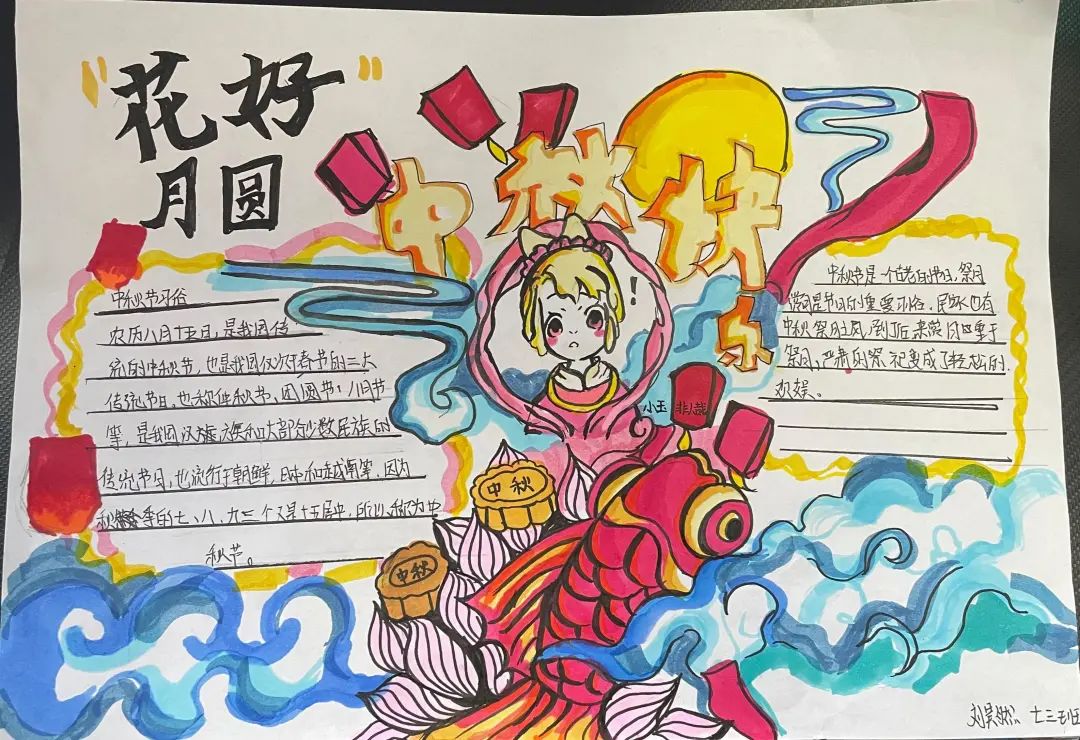 "花好"
月圆
中秋快乐
中秋节习俗
农历八月十五日，是我国传
统的中秋节，也是我国仅次于春节的第二大
传统节日，也称仲秋节，团圆节，八月节
等，是我国汉族和大部分少数民族的
传统节日，也流行于朝鲜，日本和越南等，因为
秋季的七、八、九三个又是十五居中，所以称为中
秋节。
中秋节是一个古老的节日，祭月
赏月是节日的重要习俗，民
中秋祭月之风，到了后来赏月重于
祭月，严肃的祭祀变成了轻松的
欢娱。
小玉 非哉
中秋
中秋
七三班